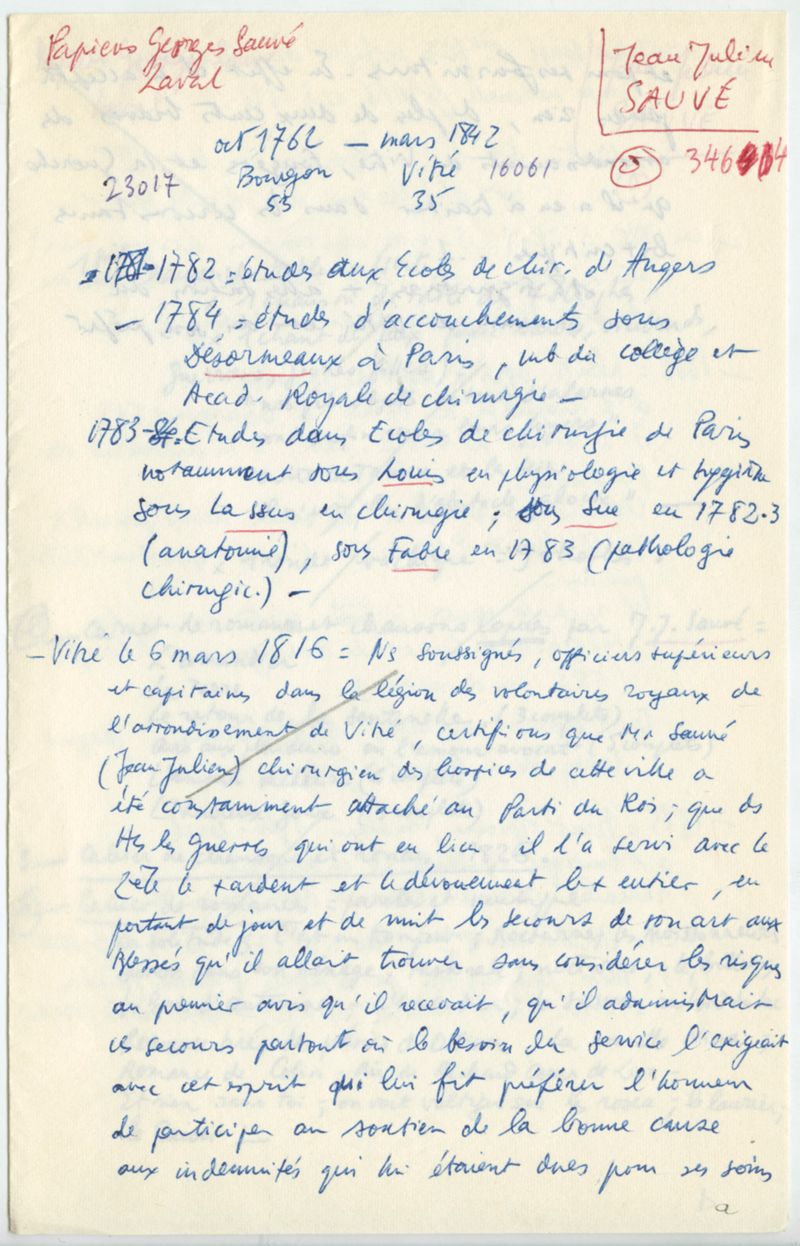 Papiers Georges Sauvé
Laval
Jean Julien
SAUVÉ
oct 1762 — mars 1842
23017 Bourgon Vitré 16061
53 35
5 346
- 1782 = études aux Ecoles de chir. d'Angers
— 1784 = études d'accouchements sous
Désormeaux à Paris, mb du collège et
Acad. Royale de chirurgie —
1783 Etudes dans Ecoles de chirurgie de Paris
notamment sous Louis en physiologie et hygiène
sous Lassus en chirurgie ; sous Sue en 1782.3
(anatomie), sous Fabre en 1783 (pathologie
chirurgic.) —
— Vitré le 6 mars 1816 = Ns soussignés, officiers supérieurs
et capitaines dans la légion des volontaires royaux de
l'arrondissement de Vitré, certifions que Mr Sauvé
(Jean Julien) chirurgien des hospices de cette ville a
été constamment attaché au Parti du Roi ; que ds
ttes les Guerres qui ont eu lieu il l'a servi avec le
Zèle le + ardent et le dévouement le + entier, en
portant de jour et de nuit les secours de son art aux
Blessés qu'il allait trouver sans considérer les risques
au premier avis qu'il recevait, qu'il administrait
ces secours partout où le besoin du service l'exigeait
avec cet esprit qui lui fit préférer l'honneur
de participer au soutien de la bonne cause
aux indemnités qui lui étaient dues pour ses soins
a